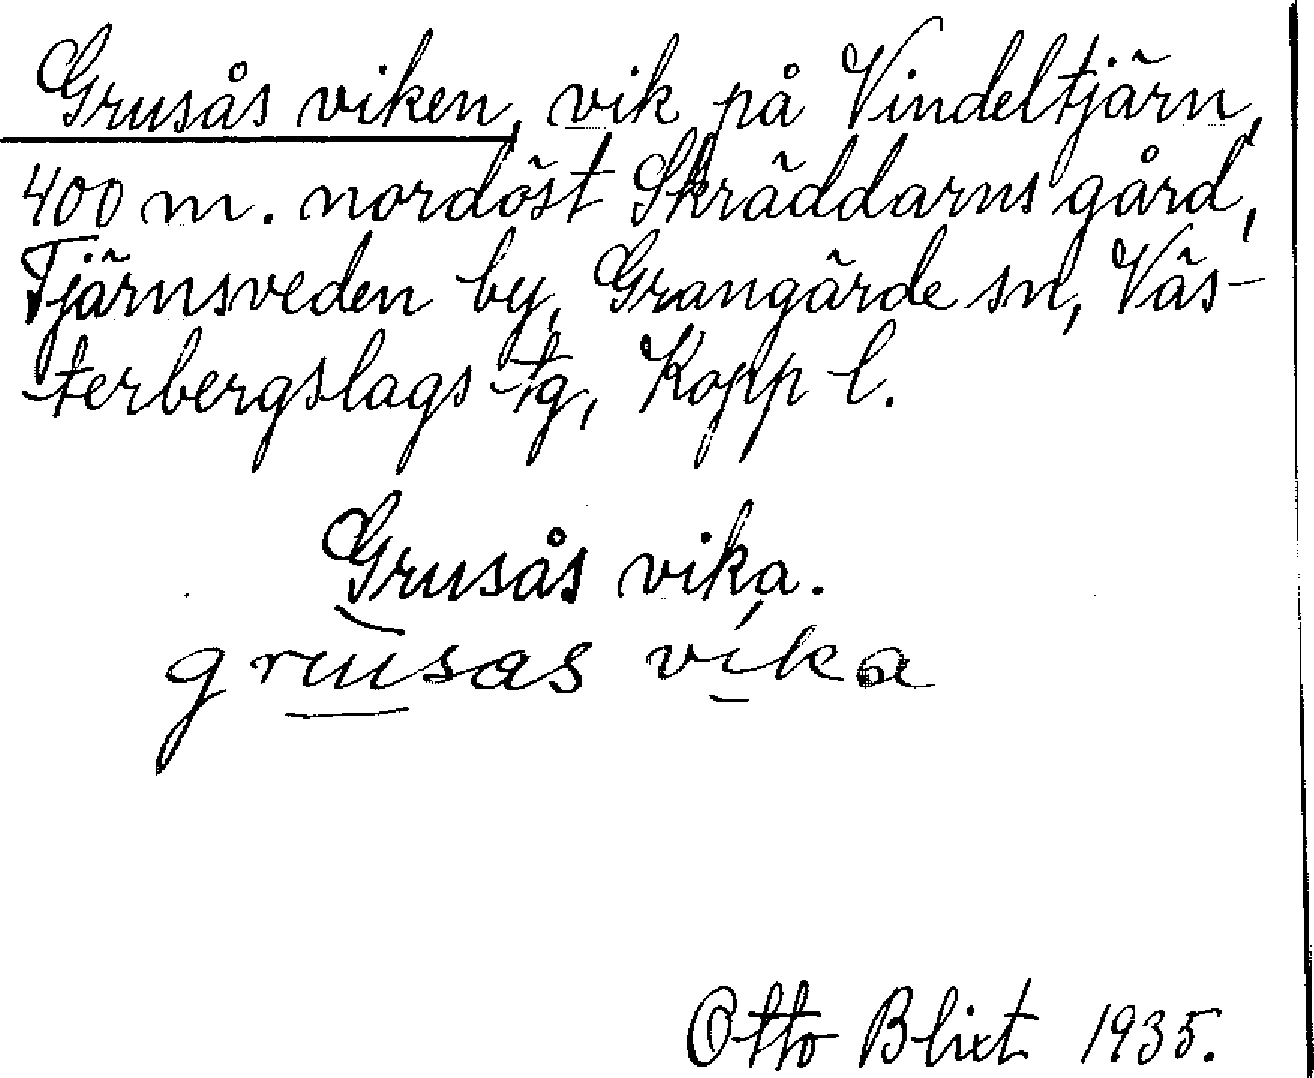 Grusås viken, vik på Vindeltjärn,
400 m. nordöst Skräddarns gård,
Tjärnsveden by, Grangärde sn, Väs-
terbergslags tg, Kopp l.
Grusås vika.
grùsas víka
Otto Blixt 1935.